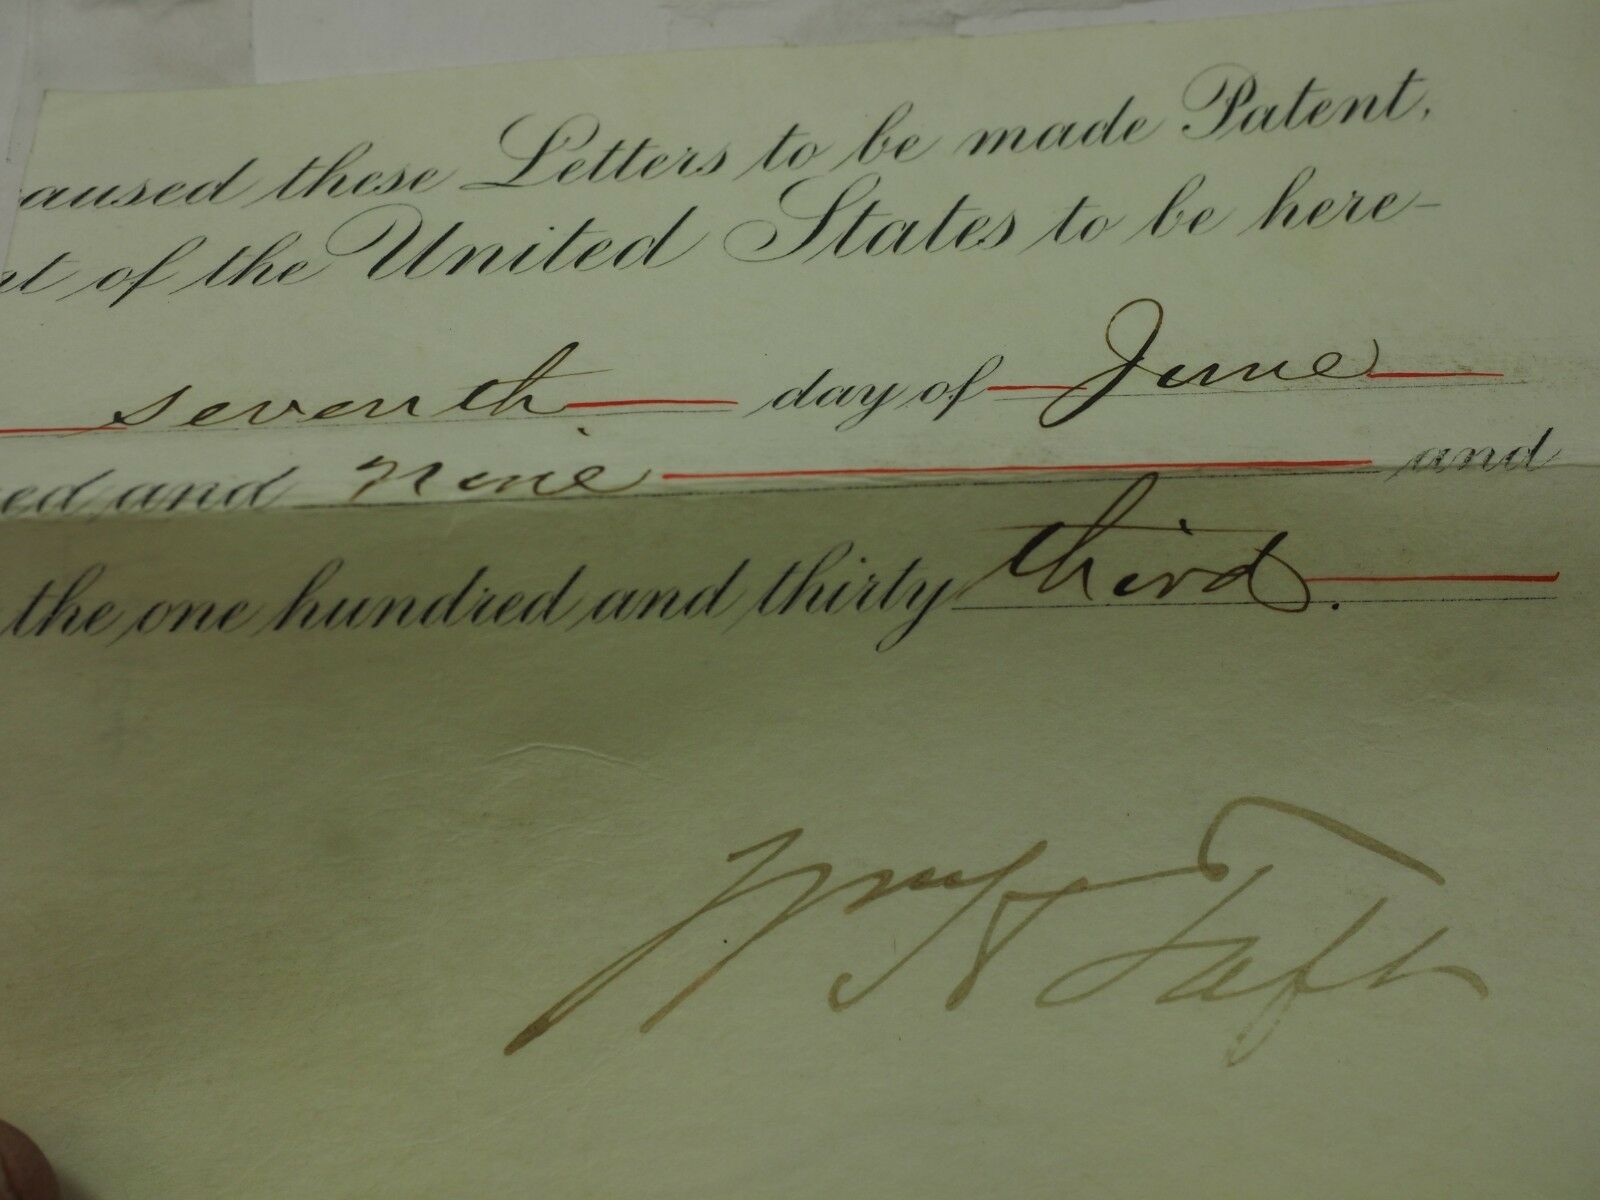 aused these Letters to be made Patent,
nt of the United States to be here-
seventh day of June
ed and nine and
the one hundred and thirty third.
Wm H Taft